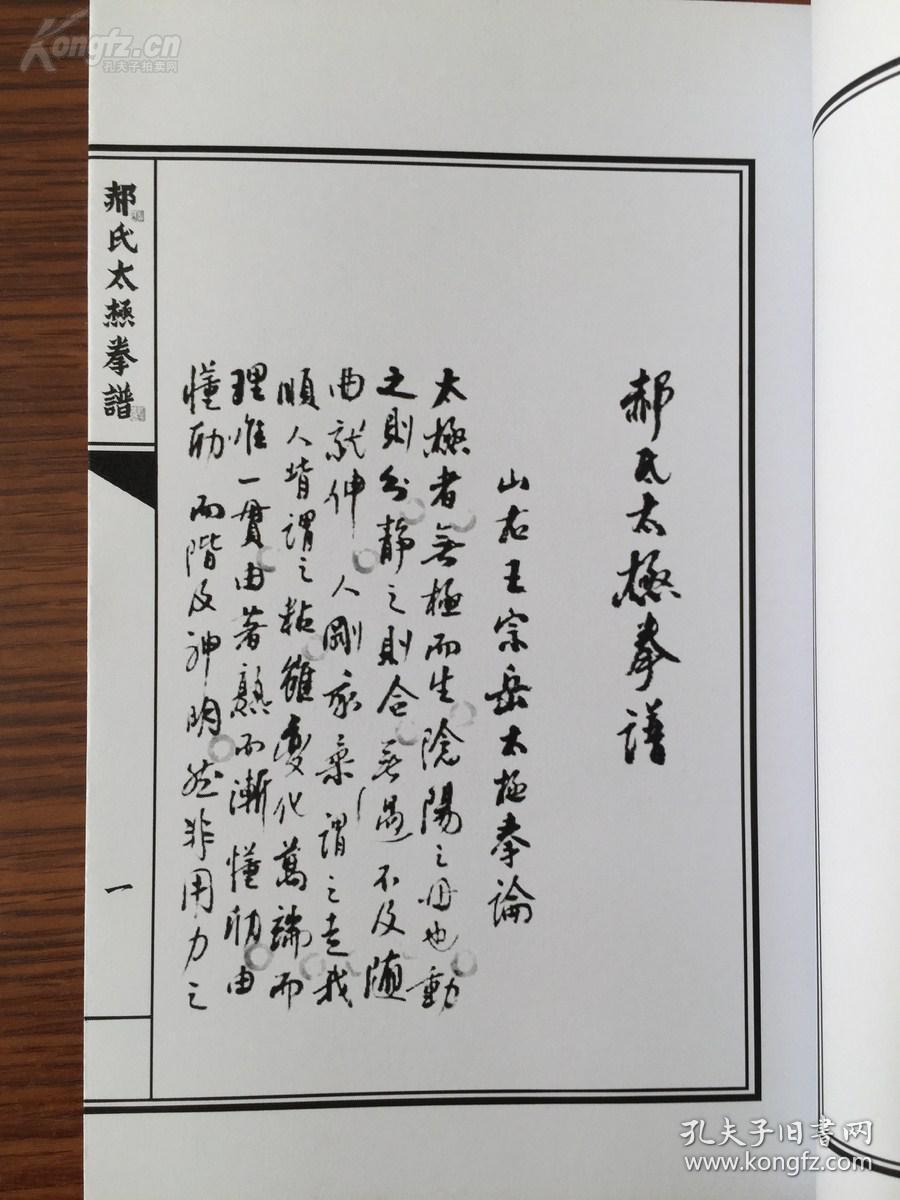 郝氏太極拳譜
山右王宗岳太極拳論
太極者無極而生陰陽之母也動
之則分靜之則合無過不及隨
曲就伸人剛我柔謂之走我
順人背謂之粘雖變化萬端而
理惟一貫由著熟而漸懂劤由
懂劤而階及神明然非用力之
郝氏太極拳譜
一
Kongfz.cn
孔夫子拍卖网
孔夫子旧書网
www.kongfz.com